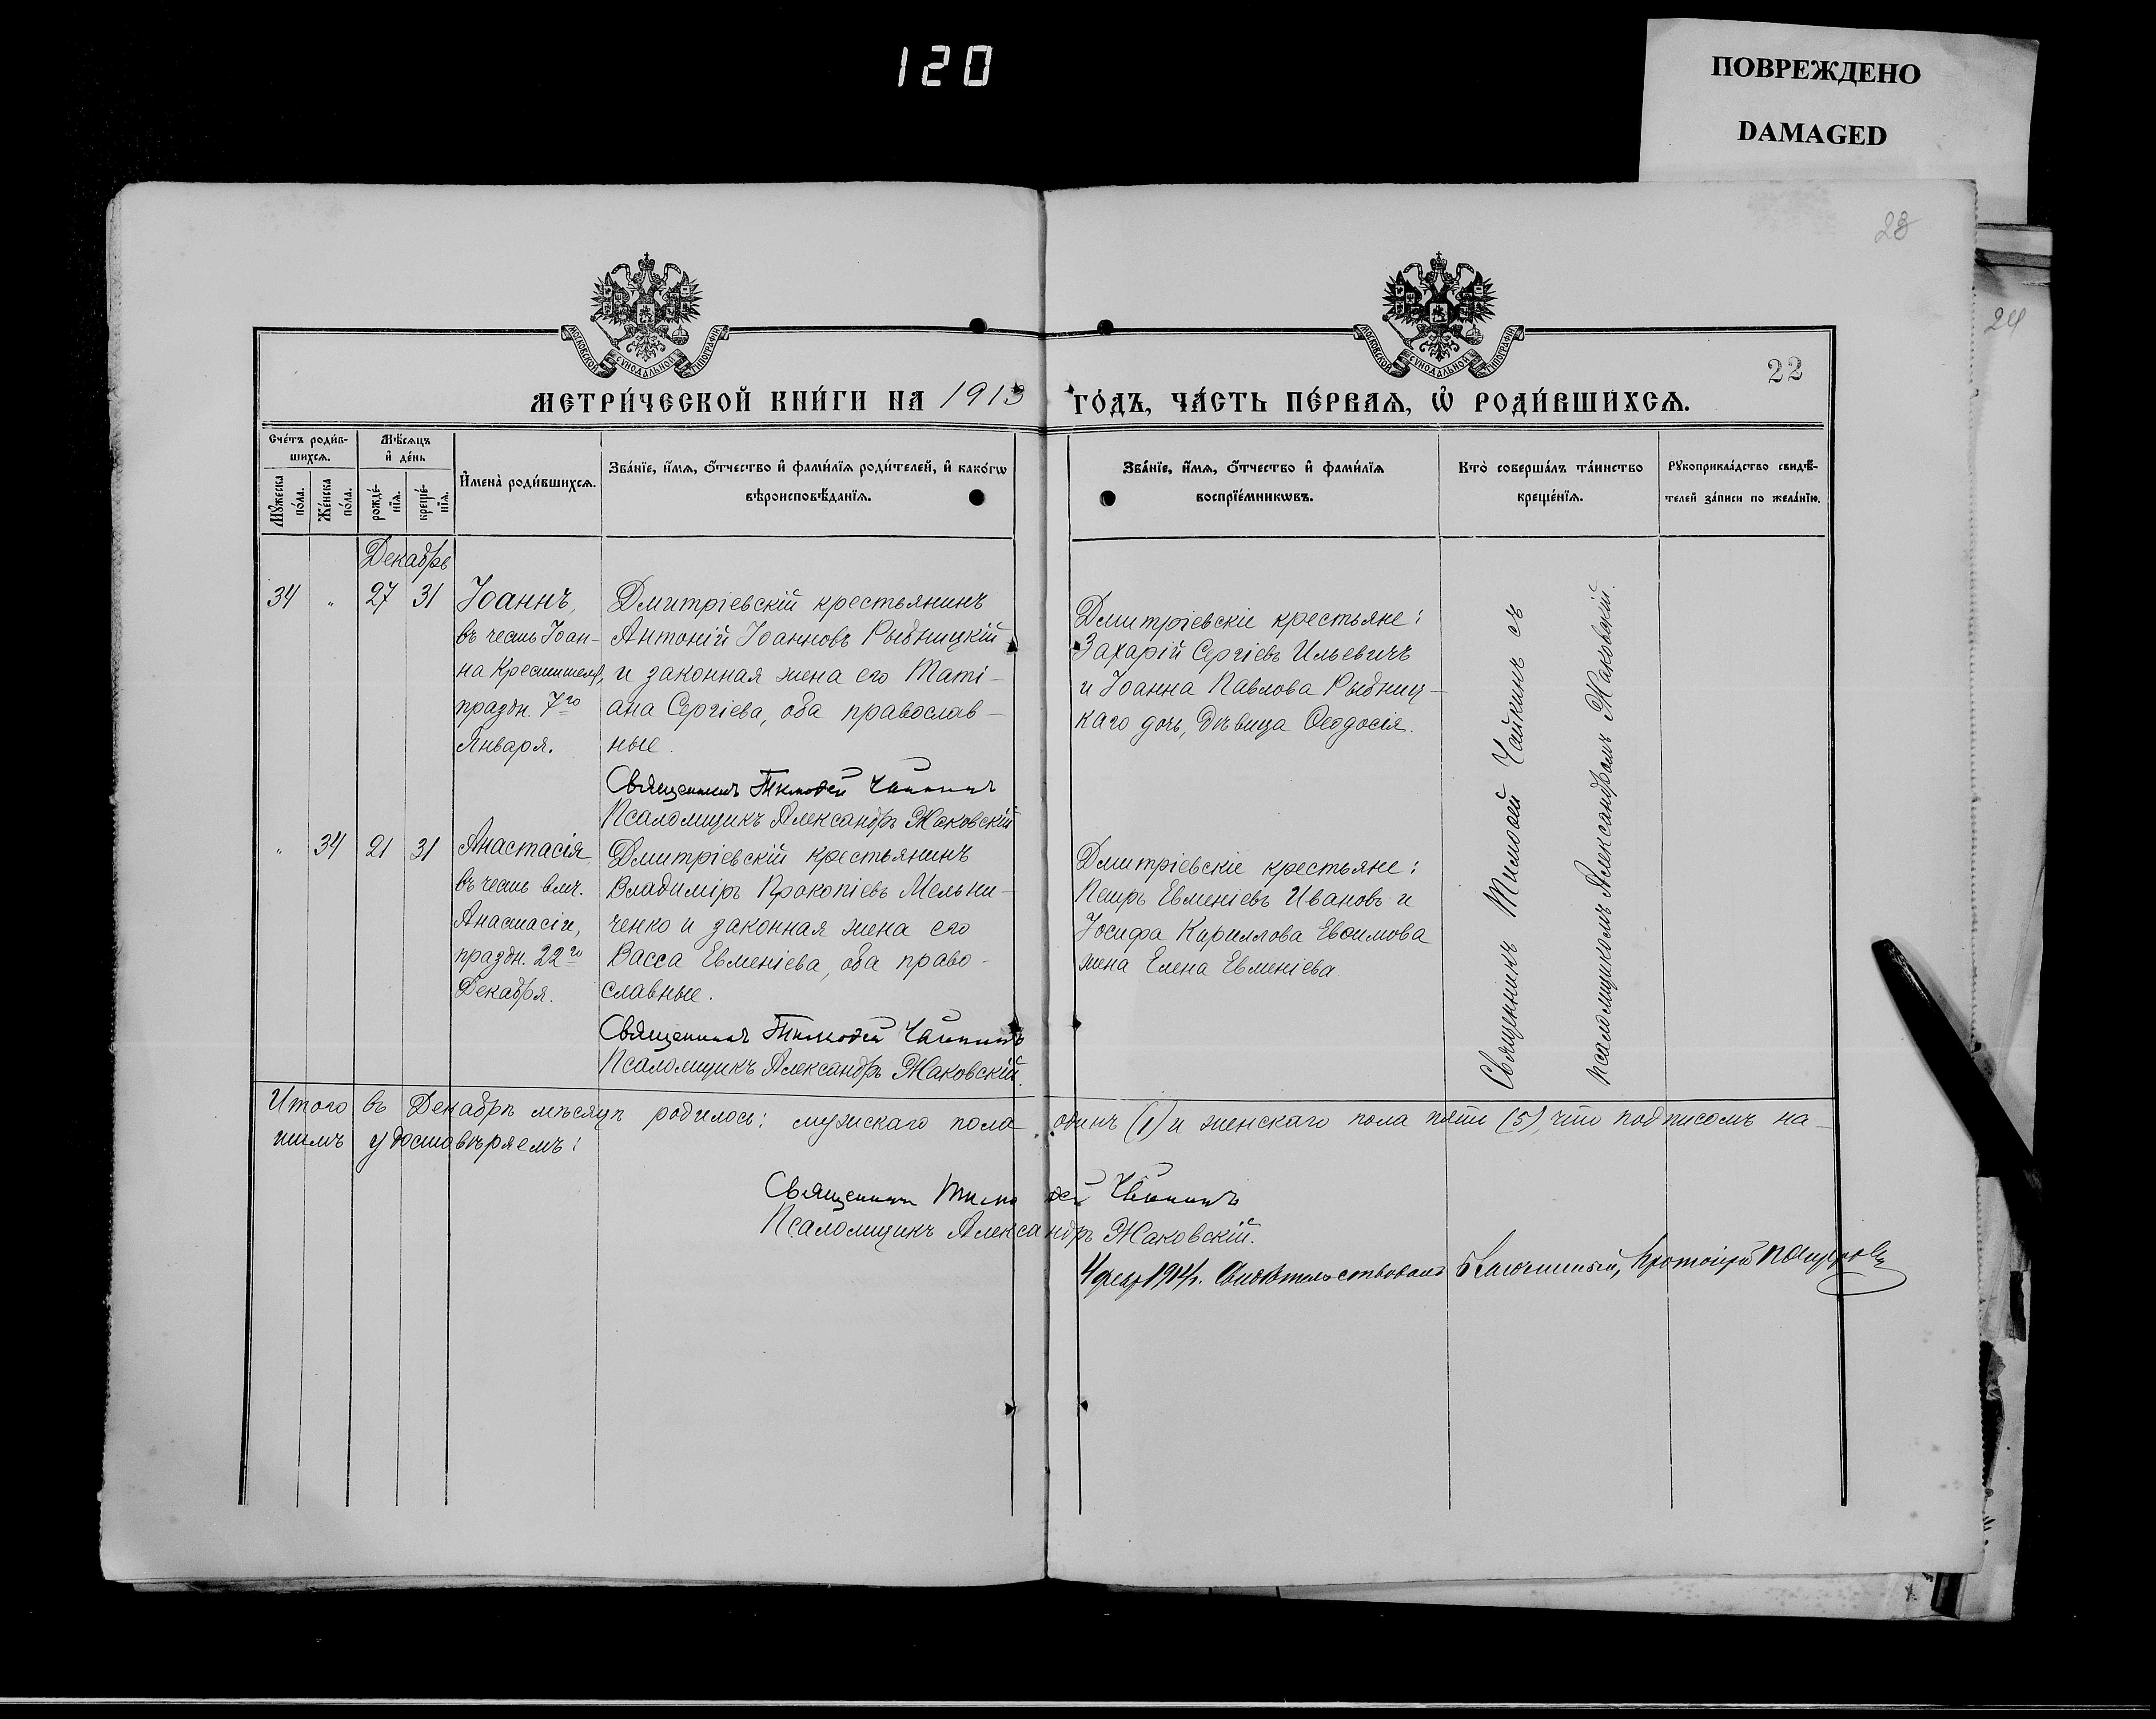 120
ПОВРЕЖДЕНО
DAMAGED
23
24
22
МОСКОВСКОЙ СУНОДАЛЬНОЙ ТИПОГРАФІИ
МОСКОВСКОЙ СУНОДАЛЬНОЙ ТИПОГРАФІИ
МЕТРИ́ЧЕСКОЙ КНИ́ГИ НА 1913 ГО́ДЪ, ЧА́СТЬ ПЕ́РВАѦ, Ѡ҆ РОДИ́ВШИХСѦ.
Сче́тъ роди́в-
шихсѧ.
Мѣ́сѧцъ
и҆ де́нь
Мꙋ́жеска
по́ла.
Же́нска
по́ла.
рожде́-
нїѧ.
креще́-
нїѧ.
И҆мена̀ роди́вшихсѧ.
Зва́нїе, и҆́мѧ, ѻ҆́тчество и҆ фами́лїѧ роди́телей, и҆ како́гѡ
вѣроисповѣ́данїѧ.
Зва́нїе, и҆́мѧ, ѻ҆́тчество и҆ фами́лїѧ
воспрїе́мникѡвъ.
Кто̀ соверша́лъ та́инство
креще́нїѧ.
Рꙋкоприкла́дство свидѣ́-
телей за́писи по жела́нїю.
Декабрь
34 " 27 31 Іоаннъ,
въ честь Іоан-
на Крестителя,
праздн. 7го
Января.
Дмитріевскій крестьянинъ
Антоній Іоанновъ Рыбницкій
и законная жена его Таті-
ана Сергіева, оба православ-
ные.
Священникъ Тимоѳей Чайкинъ
Псаломщикъ Александръ Жаковскій
Дмитріевскіе крестьяне:
Захарій Сергіевъ Ильевичъ
и Іоанна Павлова Рыбниц-
каго дочь, дѣвица Ѳеодосія.
" 34 21 31 Анастасія
въ честь влч.
Анастасіи,
праздн. 22го
Декабря.
Дмитріевскій крестьянинъ
Владиміръ Прокопіевъ Мельни-
ченко и законная жена его
Васса Евменіева, оба право-
славные.
Священникъ Тимоѳей Чайкинъ
Псаломщикъ Александръ Жаковскій.
Дмитріевскіе крестьяне:
Петръ Евменіевъ Ивановъ и
Іосифа Кириллова Евѳимова
жена Елена Евменіева.
Священникъ Тимоѳей Чайкинъ съ
псаломщикомъ Александромъ Жаковскій.
Итого въ Декабрѣ мѣсяцѣ родилось: мужскаго пола одинъ (1) и женскаго пола пять (5), что подписомъ на-
шимъ удостовѣряемъ:
Священникъ Тимоѳей Чайкинъ
Псаломщикъ Александръ Жаковскій.
4 февр 1914 г. Свидѣтельствовалъ Благочинный, Протоіерей